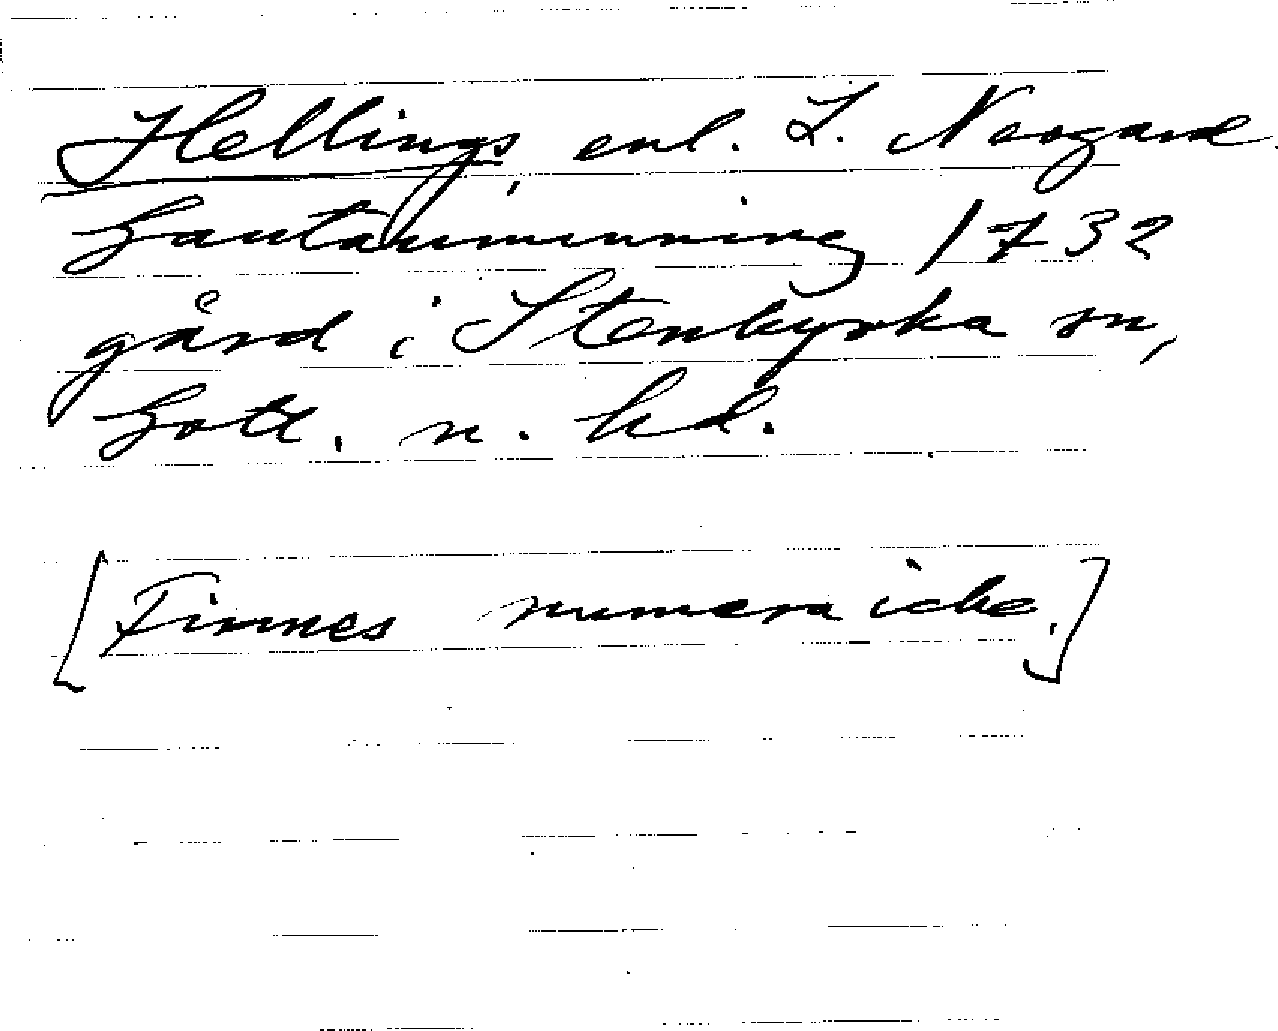 Hellings, enl. L. Neogard
Gautauminning 1732
gård i Stenkyrka sn,
Gotl. n. hd.
[Finnes numera icke.]